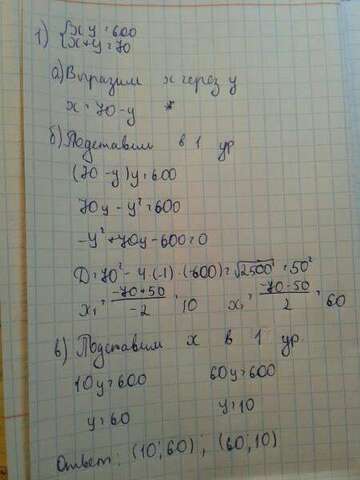 1) { xy=600
x+y=70
а) Выразим x через y
x=70-y
б) Подставим в 1 ур
(70-y)y=600
70y-y²=600
-y²+70y-600=0
D=70²-4·(-1)·(-600)=√2500=50²
x₁=(-70+50)/-2=10 x₂=(-70-50)/2=60
в) Подставим x в 1 ур.
10y=600 60y=600
y=60 y=10
Ответ: (10;60); (60;10)